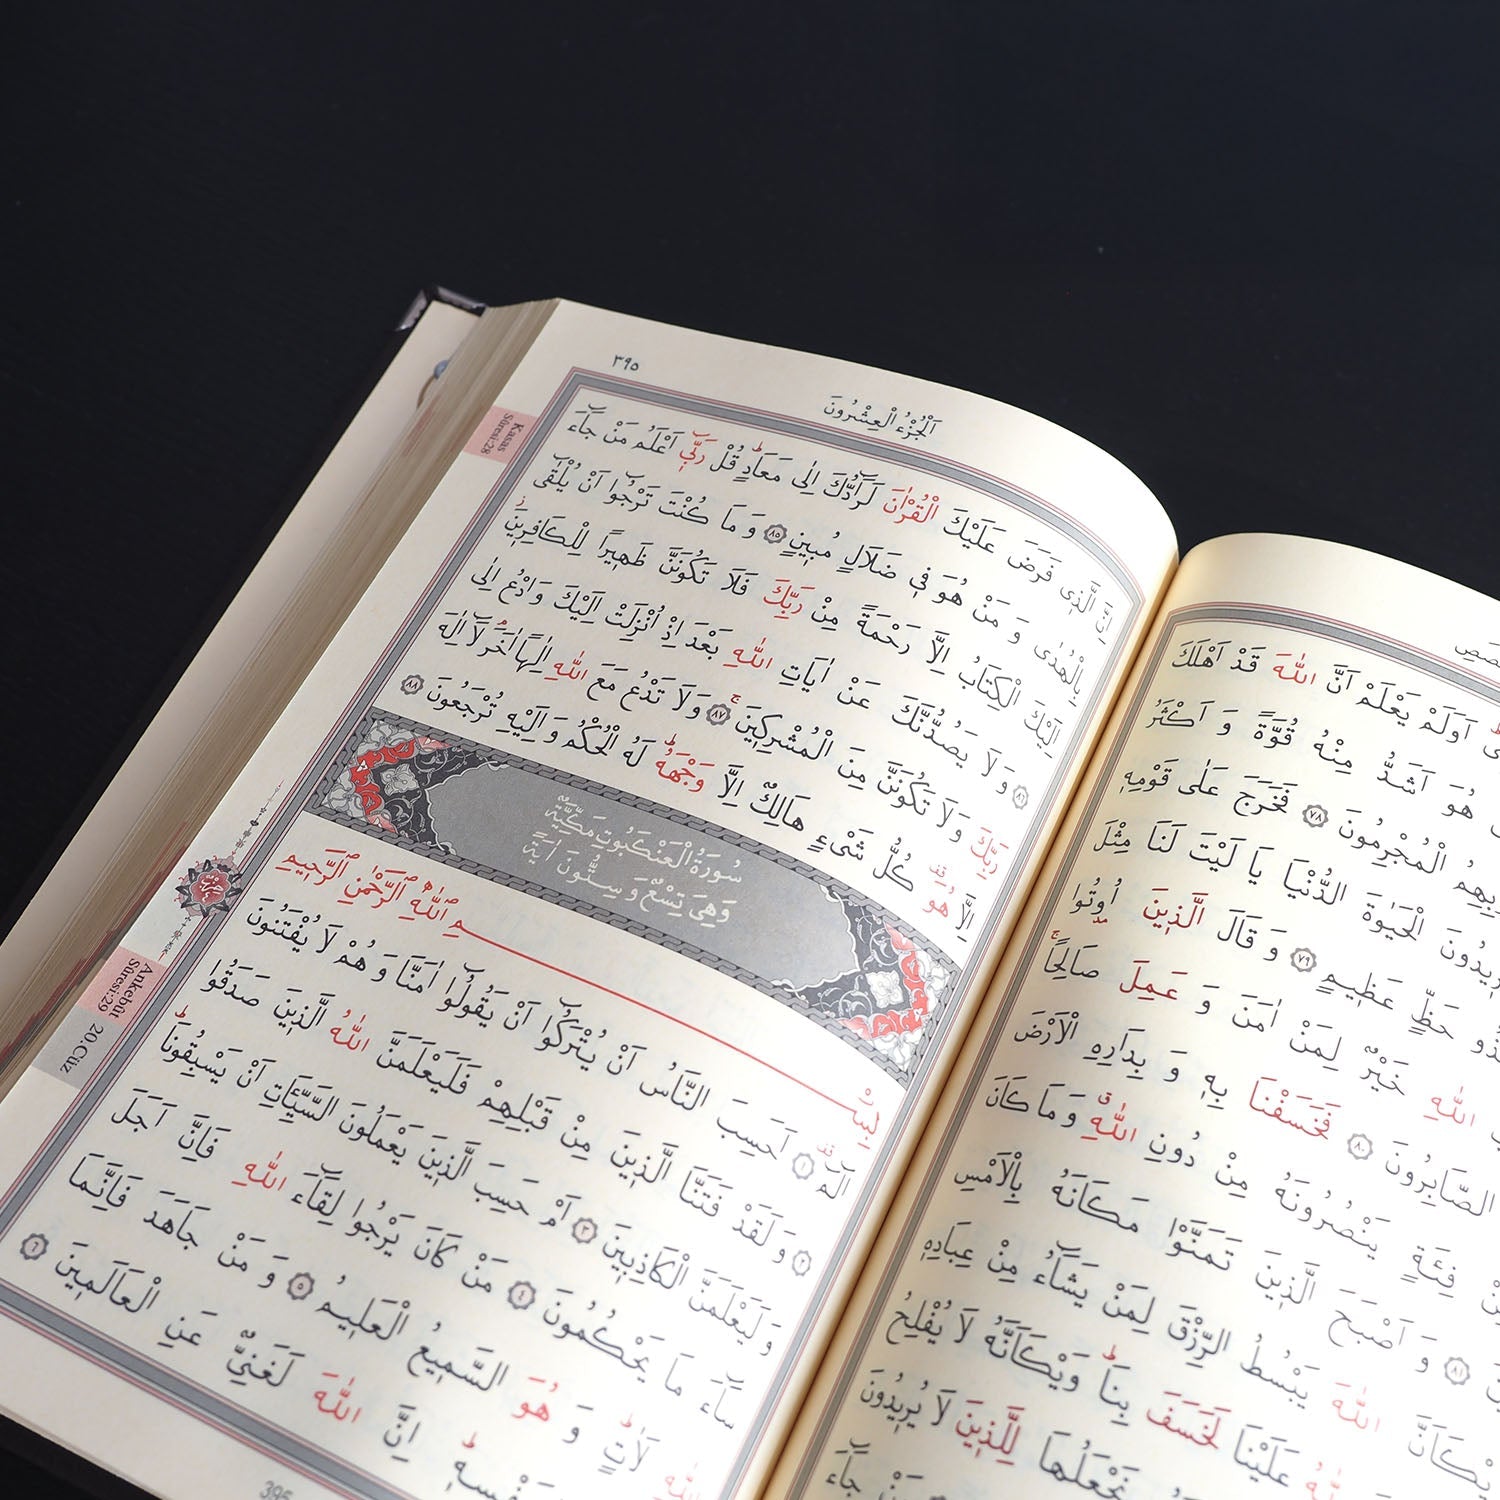 اَوَلَمْ يَعْلَمْ اَنَّ اللّٰهَ قَدْ اَهْلَكَ
هُوَ اَشَدُّ مِنْهُ قُوَّةً وَ اَكْثَرُ
الْمُجْرِمُونَ ٧٨ فَخَرَجَ عَلٰى قَوْمِهٖ
الْحَيٰوةَ الدُّنْيَا يَا لَيْتَ لَنَا مِثْلَ
حَظٍّ عَظِيمٍ ٧٩ وَ قَالَ الَّذِينَ اُوتُوا
اللّٰهِ خَيْرٌ لِمَنْ اٰمَنَ وَ عَمِلَ صَالِحًا
الصَّابِرُونَ ٨٠ فَخَسَفْنَا بِهٖ وَ بِدَارِهِ الْاَرْضَ
فِئَةٍ يَنْصُرُونَهُ مِنْ دُونِ اللّٰهِ وَ مَا كَانَ
٨١ وَ اَصْبَحَ الَّذِينَ تَمَنَّوْا مَكَانَهُ بِالْاَمْسِ
اللّٰهَ يَبْسُطُ الرِّزْقَ لِمَنْ يَشَٓاءُ مِنْ عِبَادِهٖ
عَلَيْنَا لَخَسَفَ بِنَا وَيْكَاَنَّهُ لَا يُفْلِحُ
نَجْعَلُهَا لِلَّذِينَ لَا يُرِيدُونَ
مَنْ جَٓاءَ
اَلْجُزْءُ الْعِشْرُونَ
٣٩٥
اِنَّ الَّذِى فَرَضَ عَلَيْكَ الْقُرْاٰنَ لَرَٓادُّكَ اِلٰى مَعَادٍ قُلْ رَبِّٓى اَعْلَمُ مَنْ جَٓاءَ
بِالْهُدٰى وَ مَنْ هُوَ فِى ضَلَالٍ مُبِينٍ ٨٥ وَ مَا كُنْتَ تَرْجُٓوا اَنْ يُلْقٰٓى
اِلَيْكَ الْكِتَابُ اِلَّا رَحْمَةً مِنْ رَبِّكَ فَلَا تَكُونَنَّ ظَهِيرًا لِلْكَافِرِينَ
٨٦ وَ لَا يَصُدُّنَّكَ عَنْ اٰيَاتِ اللّٰهِ بَعْدَ اِذْ اُنْزِلَتْ اِلَيْكَ وَ ادْعُ اِلٰى
رَبِّكَ وَ لَا تَكُونَنَّ مِنَ الْمُشْرِكِينَ ٨٧ وَ لَا تَدْعُ مَعَ اللّٰهِ اِلٰهًا اٰخَرَ لَٓا اِلٰهَ
اِلَّا هُوَ كُلُّ شَىْءٍ هَالِكٌ اِلَّا وَجْهَهُ لَهُ الْحُكْمُ وَ اِلَيْهِ تُرْجَعُونَ ٨٨
سُورَةُ الْعَنْكَبُوتِ مَكِّيَّةٌ
وَهِىَ تِسْعٌ وَ سِتُّونَ اٰيَةً
بِسْمِ اللّٰهِ الرَّحْمٰنِ الرَّحِيمِ
الٓمٓ ١ اَحَسِبَ النَّاسُ اَنْ يُتْرَكُٓوا اَنْ يَقُولُٓوا اٰمَنَّا وَ هُمْ لَا يُفْتَنُونَ
٢ وَ لَقَدْ فَتَنَّا الَّذِينَ مِنْ قَبْلِهِمْ فَلَيَعْلَمَنَّ اللّٰهُ الَّذِينَ صَدَقُوا
وَ لَيَعْلَمَنَّ الْكَاذِبِينَ ٣ اَمْ حَسِبَ الَّذِينَ يَعْمَلُونَ السَّيِّـَٔاتِ اَنْ يَسْبِقُونَا
سَٓاءَ مَا يَحْكُمُونَ ٤ مَنْ كَانَ يَرْجُوا لِقَٓاءَ اللّٰهِ فَاِنَّ اَجَلَ
اللّٰهِ لَاٰتٍ وَ هُوَ السَّمِيعُ الْعَلِيمُ ٥ وَ مَنْ جَاهَدَ فَاِنَّمَا
اِنَّ اللّٰهَ لَغَنِىٌّ عَنِ الْعَالَمِينَ ٦
Kasas
Sûresi:28
Ankebût
Sûresi:29
20.Cüz
395